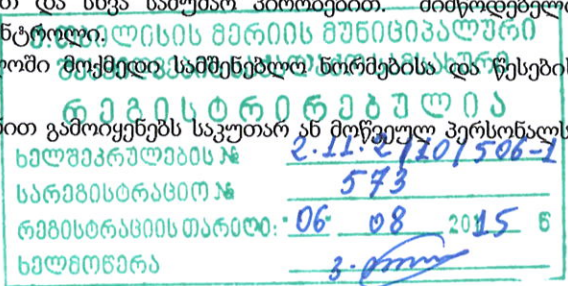 და სხვა სამუშაო პირობებით. მიმწოდებელი
ქ. თბილისის მერიის მუნიციპალური
ნტროლი.
ოში მოქმედი სამშენებლო ნორმებისა და წესების
რეგისტრირებულია
ით გამოიყენებს საკუთარ ან მოწვეულ პერსონალს
ხელშეკრულების № 2.11.2/10/506-1
სარეგისტრაციო № 573
რეგისტრაციის თარიღი: "06" 08 2015 წ
ხელმოწერა